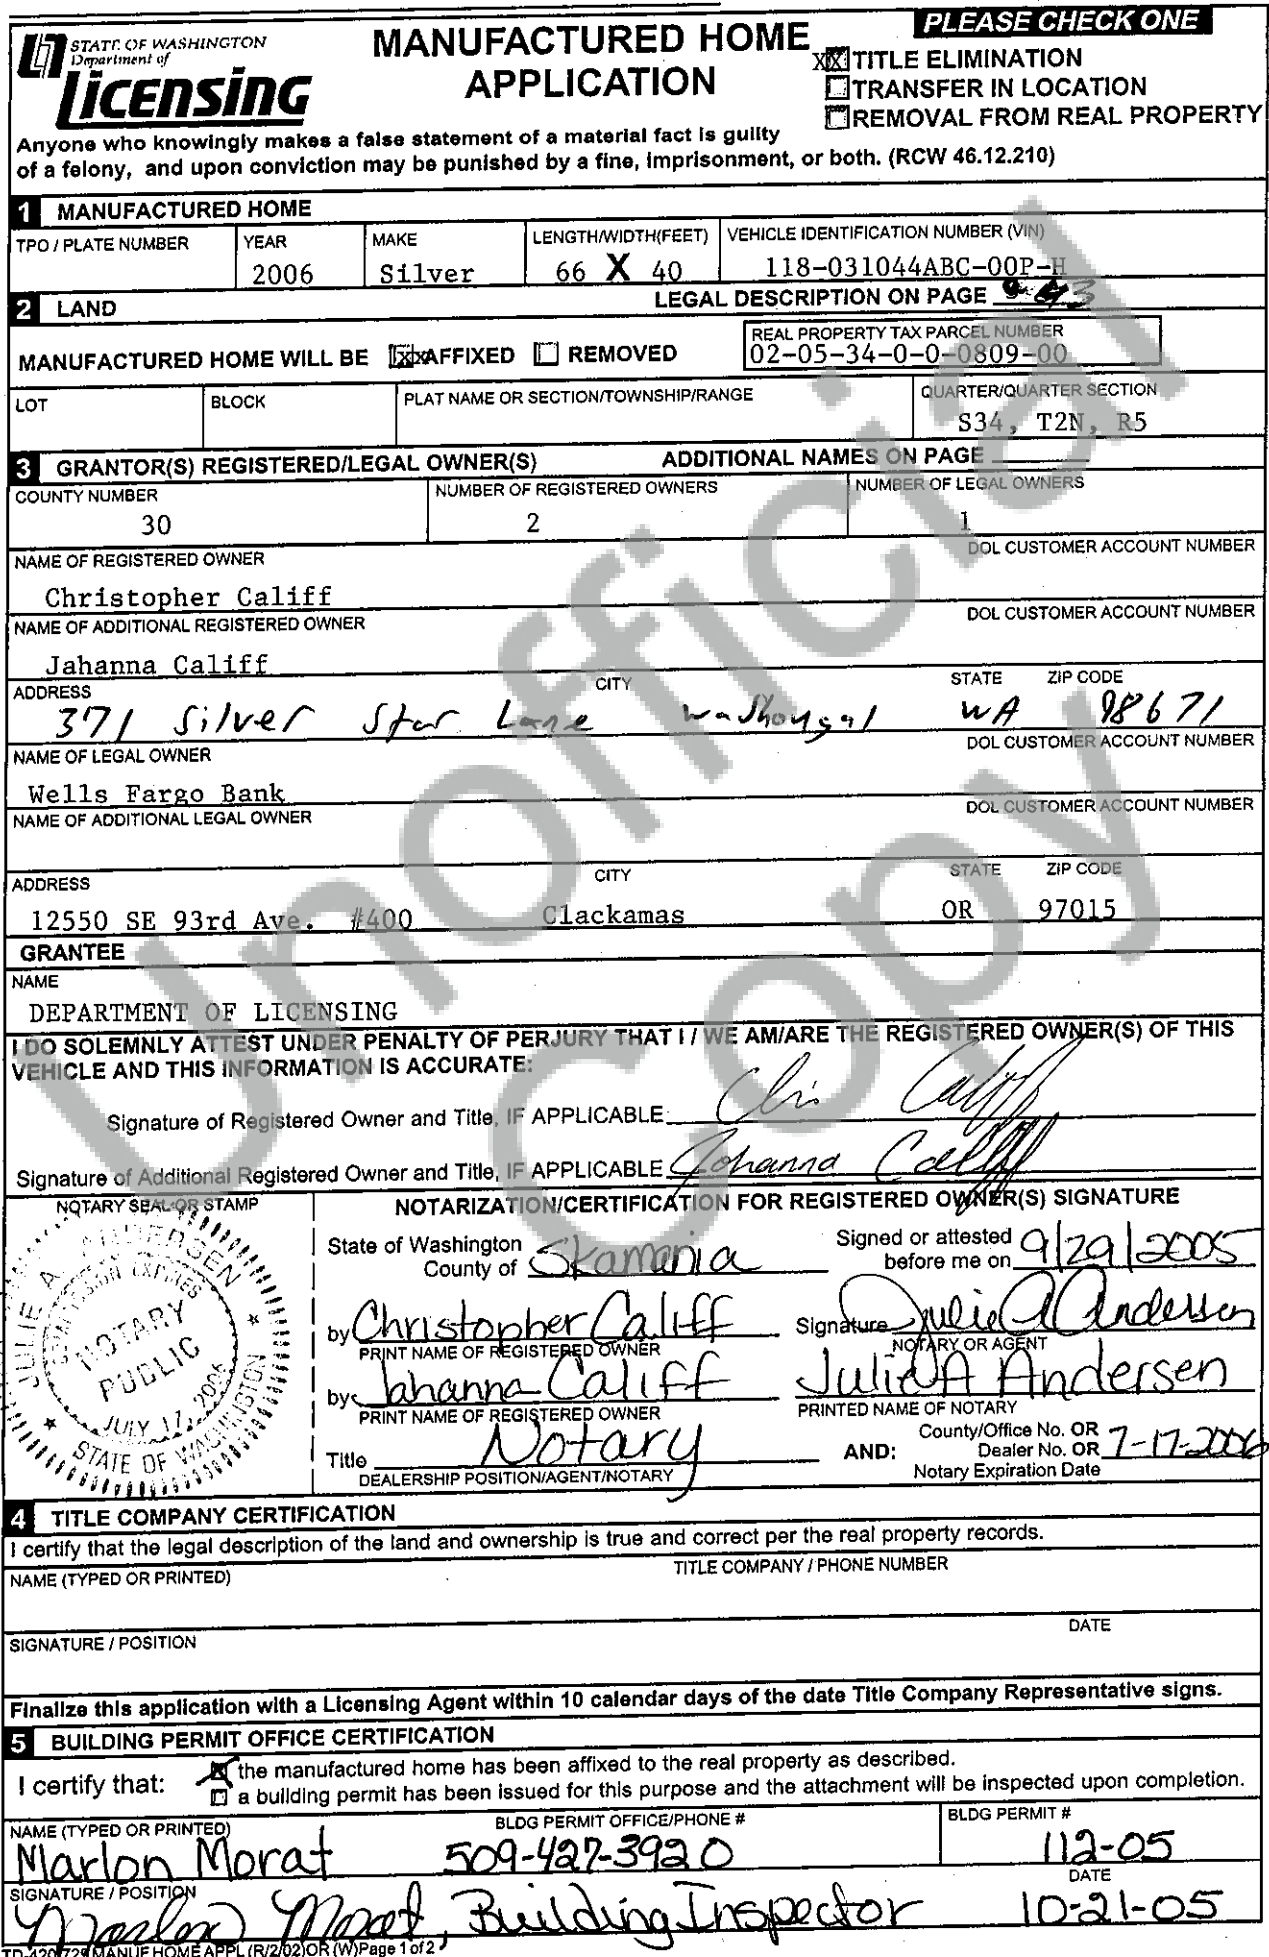 PLEASE CHECK ONE
STATE OF WASHINGTON
Department of
Licensing
MANUFACTURED HOME
APPLICATION
XX TITLE ELIMINATION
TRANSFER IN LOCATION
REMOVAL FROM REAL PROPERTY
Anyone who knowingly makes a false statement of a material fact is guilty
of a felony, and upon conviction may be punished by a fine, imprisonment, or both. (RCW 46.12.210)
1 MANUFACTURED HOME
TPO / PLATE NUMBER YEAR MAKE LENGTH/WIDTH(FEET) VEHICLE IDENTIFICATION NUMBER (VIN)
2006 Silver 66 X 40 118-031044ABC-00P-H
2 LAND LEGAL DESCRIPTION ON PAGE 3
MANUFACTURED HOME WILL BE XX AFFIXED REMOVED
REAL PROPERTY TAX PARCEL NUMBER
02-05-34-0-0-0809-00
LOT BLOCK PLAT NAME OR SECTION/TOWNSHIP/RANGE QUARTER/QUARTER SECTION
S34, T2N, R5
3 GRANTOR(S) REGISTERED/LEGAL OWNER(S) ADDITIONAL NAMES ON PAGE
COUNTY NUMBER NUMBER OF REGISTERED OWNERS NUMBER OF LEGAL OWNERS
30 2 1
NAME OF REGISTERED OWNER DOL CUSTOMER ACCOUNT NUMBER
Christopher Califf
NAME OF ADDITIONAL REGISTERED OWNER DOL CUSTOMER ACCOUNT NUMBER
Jahanna Califf
ADDRESS CITY STATE ZIP CODE
371 Silver Star Lane Washougal WA 98671
NAME OF LEGAL OWNER DOL CUSTOMER ACCOUNT NUMBER
Wells Fargo Bank
NAME OF ADDITIONAL LEGAL OWNER DOL CUSTOMER ACCOUNT NUMBER
ADDRESS CITY STATE ZIP CODE
12550 SE 93rd Ave. #400 Clackamas OR 97015
GRANTEE
NAME
DEPARTMENT OF LICENSING
I DO SOLEMNLY ATTEST UNDER PENALTY OF PERJURY THAT I / WE AM/ARE THE REGISTERED OWNER(S) OF THIS
VEHICLE AND THIS INFORMATION IS ACCURATE:
Signature of Registered Owner and Title, IF APPLICABLE: Chris Califf
Signature of Additional Registered Owner and Title, IF APPLICABLE Johanna Califf
NOTARY SEAL OR STAMP
JULIE A. ANDERSEN
COMMISSION EXPIRES
NOTARY
PUBLIC
JULY 17, 2006
STATE OF WASHINGTON
NOTARIZATION/CERTIFICATION FOR REGISTERED OWNER(S) SIGNATURE
State of Washington
County of Skamania
Signed or attested
before me on 9/29/2005
by Christopher Califf Signature Julie A Andersen
PRINT NAME OF REGISTERED OWNER NOTARY OR AGENT
by Jahanna Califf Julie A Andersen
PRINT NAME OF REGISTERED OWNER PRINTED NAME OF NOTARY
Title Notary
DEALERSHIP POSITION/AGENT/NOTARY
AND: County/Office No. OR
Dealer No. OR 7-17-2006
Notary Expiration Date
4 TITLE COMPANY CERTIFICATION
I certify that the legal description of the land and ownership is true and correct per the real property records.
NAME (TYPED OR PRINTED) TITLE COMPANY / PHONE NUMBER
SIGNATURE / POSITION DATE
Finalize this application with a Licensing Agent within 10 calendar days of the date Title Company Representative signs.
5 BUILDING PERMIT OFFICE CERTIFICATION
I certify that: the manufactured home has been affixed to the real property as described.
a building permit has been issued for this purpose and the attachment will be inspected upon completion.
NAME (TYPED OR PRINTED) BLDG PERMIT OFFICE/PHONE # BLDG PERMIT #
Marlon Morat 509-427-3920 112-05
SIGNATURE / POSITION DATE
Marlon Morat, Building Inspector 10-21-05
TD-420-729 MANUF HOME APPL (R/2/02)OR (W)Page 1 of 2
Unofficial
Copy